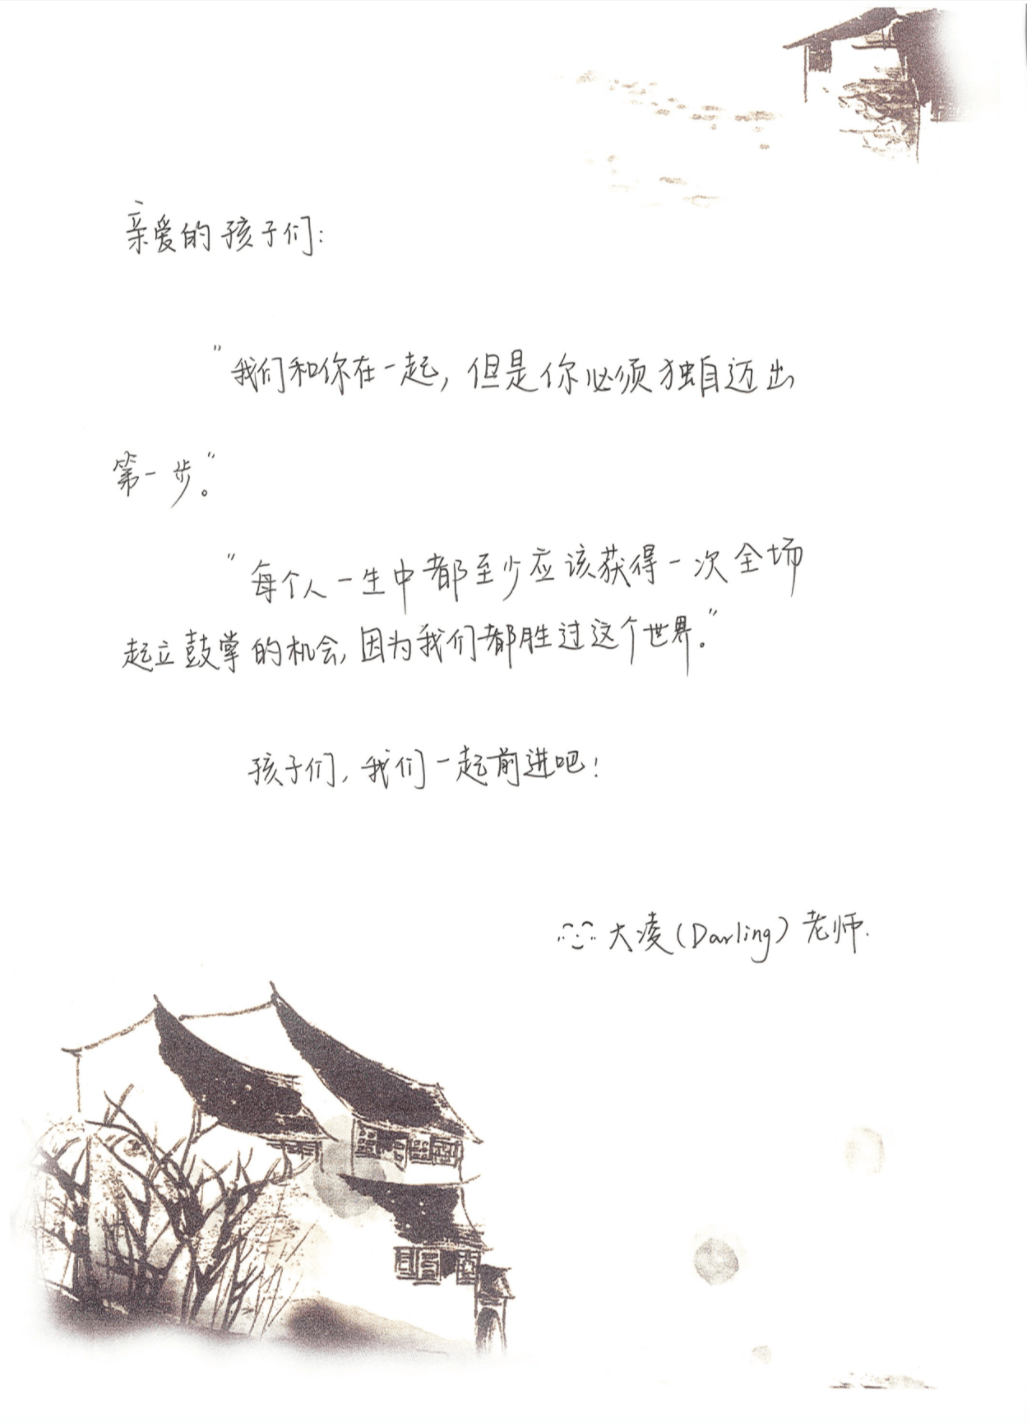 亲爱的孩子们:
"我们和你在一起,但是你必须独自迈出
第一步。"
"每个人一生中都至少应该获得一次全场
起立鼓掌的机会,因为我们都胜过这个世界。"
孩子们,我们一起前进吧!
大凌(Darling)老师.